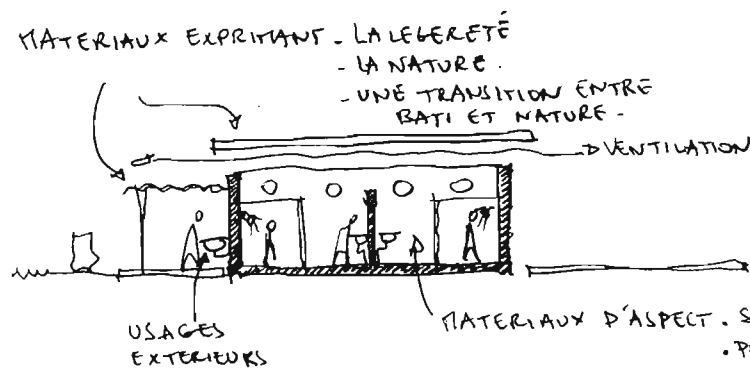 MATERIAUX EXPRIMANT - LA LEGERETÉ
- LA NATURE.
- UNE TRANSITION ENTRE
BATI ET NATURE -
VENTILATION
USAGES
EXTERIEURS
MATERIAUX D'ASPECT.